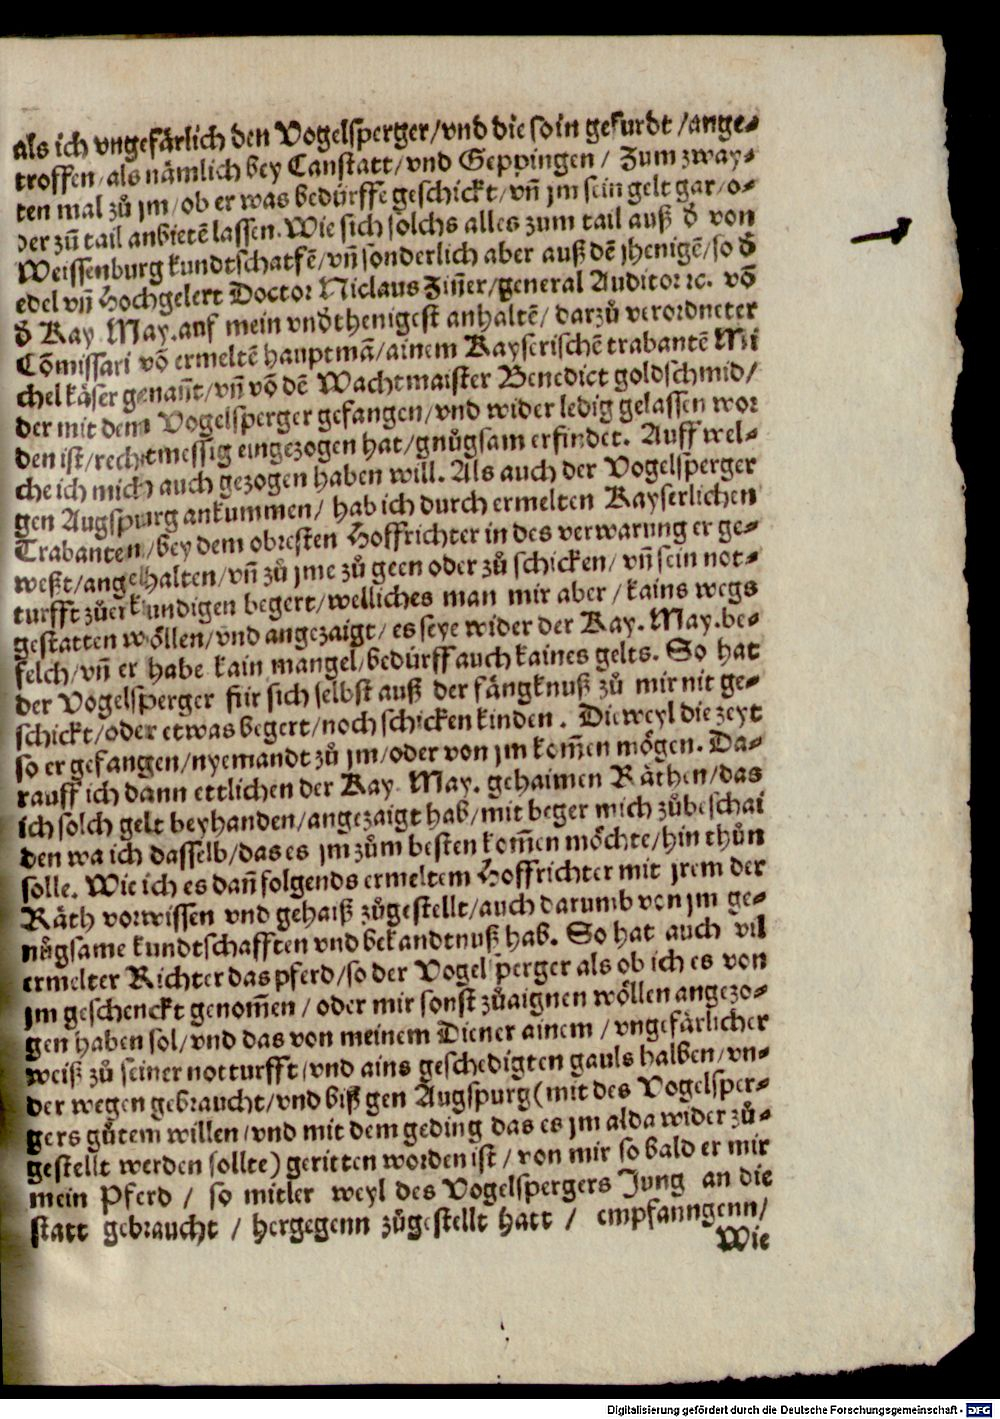 als ich vngefärlich den Vogelsperger/vnd die so in gefurdt/ange-
troffen/als nämlich bey Canstatt/vnd Geppingen/ Zum zway-
ten mal zů jm/ob er was bedürffe geschickt/vñ jm sein gelt gar/o-
der zů tail anbietē lassen. Wie sich sölchs alles zum tail auß đ von
Weissenburg kundtschatfē/vñ sonderlich aber auß dē jhenigē/so đ
edel vñ Hochgelert Doctor Niclaus Zin̄er/general Auditor ꝛc. vō
đ Kay. May. auf mein vnđthenigest anhaltē/ darzů verordneter
Cōmissari vō ermeltē hauptmā/ainem Kayserischē trabantē Mi
chel käser genañt/vñ vō dē Wachtmaister Benedict goldschmid/
der mit dem Vogelsperger gefangen/vnd wider ledig gelassen wor
den ist/rechtmessig eingezogen hat/gnůgsam erfindet. Auff wel-
che ich mich auch gezogen haben will. Als auch der Vogelsperger
gen Augspurg ankummen/ hab ich durch ermelten Kayserlichen
Trabanten/bey dem obresten Hoffrichter in des verwarung er ge-
weßt/angehalten/vñ zů jme zů geen oder zů schicken/ vñ sein not-
turfft zůerkundigen begert/welliches man mir aber/kains wegs
gestatten wöllen/vnd angezaigt/es seye wider der Kay. May. be-
felch/vñ er habe kain mangel/bedürff auch kaines gelts. So hat
der Vogelsperger für sich selbst auß der fängknuß zů mir nit ge-
schickt/oder etwas begert/noch schicken kinden. Dieweyl die zeyt
so er gefangen/nyemandt zů jm/oder von jm kom̄en mögen. Da-
rauff ich dann ettlichen der Kay. May. gehaimen Räthen/das
ich solch gelt beyhanden/angezaigt hab/mit beger mich zůbeschai
den wa ich dasselb/das es jm zům besten kom̄en möchte/hin thůn
solle. Wie ich es dañ folgends ermeltem Hoffrichter mit jrem der
Räth vorwissen vnd gehaiß zůgestellt/auch darumb von jm ge-
nůgsame kundtschafften vnd bekandtnuß hab. So hat auch vil
ermelter Richter das pferd/so der Vogelsperger als ob ich es von
jm geschenckt genom̄en/oder mir sonst zůaignen wöllen angezo-
gen haben sol/vnd das von meinem Diener ainem/vngefärlicher
weiß zů seiner notturfft/vnd ains geschedigten gauls halben/vn-
der wegen gebraucht/vnd biß gen Augspurg (mit des Vogelsper-
gers gůtem willen/vnd mit dem geding das es jm alda wider zů-
gestellt werden sollte) geritten worden ist/von mir so bald er mir
mein Pferd/ so mitler weyl des Vogelspergers Jung an die
statt gebraucht/ hergegenn zůgestellt hatt/ empfanngenn/
Wie
Digitalisierung gefördert durch die Deutsche Forschungsgemeinschaft - DFG